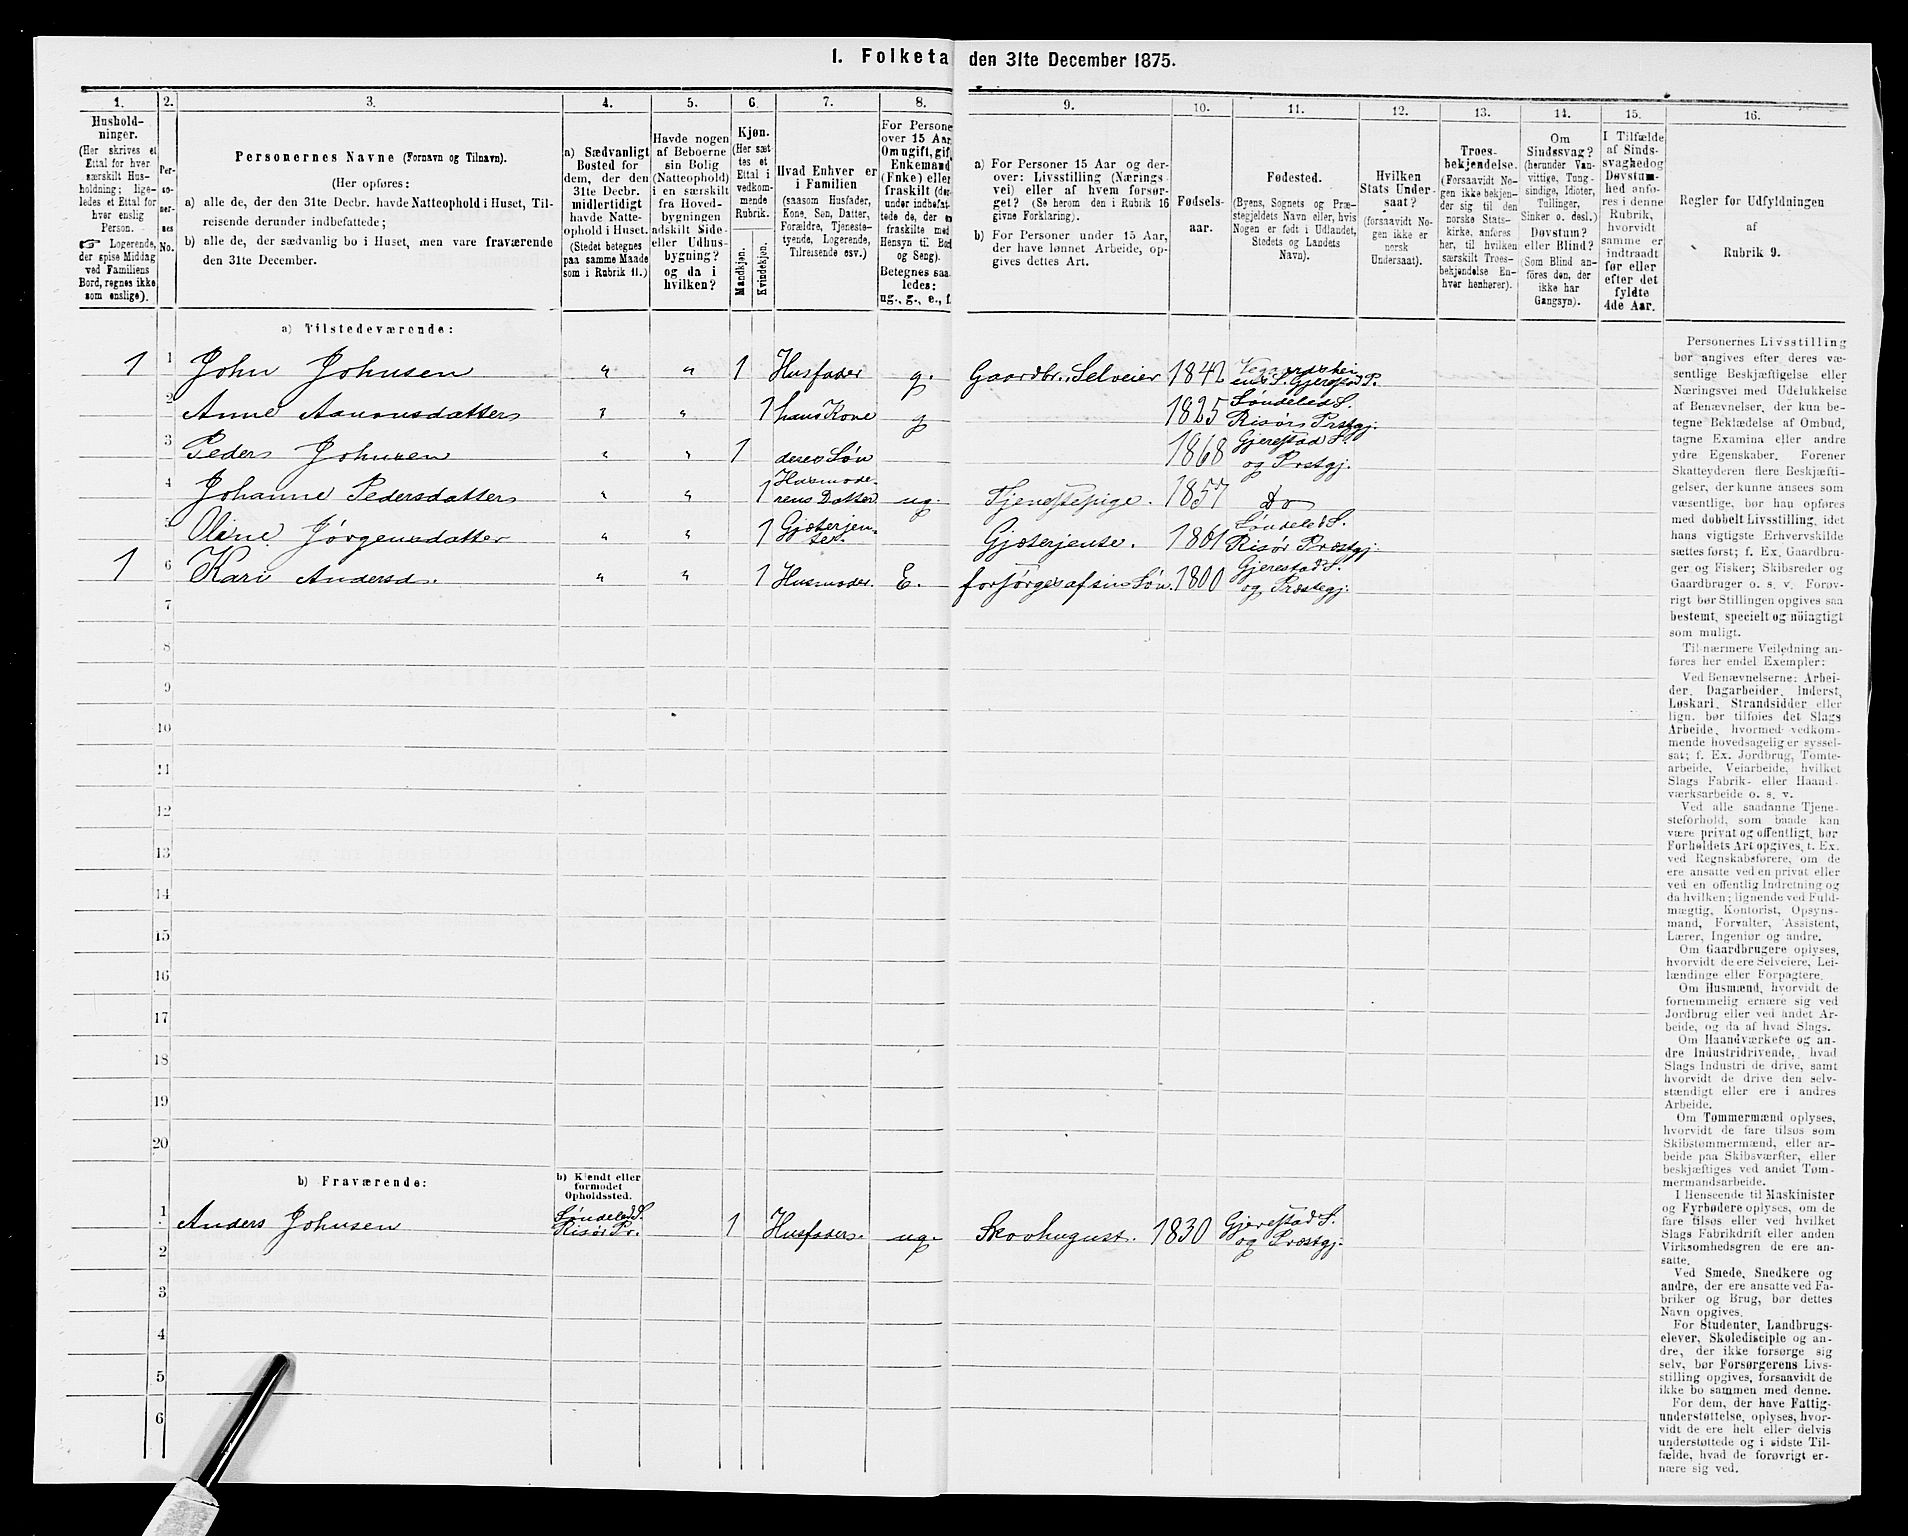 1. Folketa den 31te December 1875.
1. 2. 3. 4. 5. 6. 7. 8. 9. 10. 11. 12. 13. 14. 15. 16.
Hushold-
ninger.
(Her skrives et
Ettal for hver
særskilt Hus-
holdning; lige-
ledes et Ettal for
hver enslig
Person.
☞ Logerende,
der spise Middag
ved Familiens
Bord, regnes ikke
som enslige).
Per-
so-
ner-
nes
No.
Personernes Navne (Fornavn og Tilnavn).
(Her opføres:
a) alle de, der den 31te Decbr. havde Natteophold i Huset, Til-
reisende derunder indbefattede;
b) alle de, der sædvanlig bo i Huset, men vare fraværende
den 31te December.
a) Sædvanligt
Bosted for
dem, der den
31te Decbr.
midlertidigt
havde Natte-
ophold i Huset.
(Stedet betegnes
paa samme Maade
som i Rubrik 11.)
Havde nogen
af Beboerne
sin Bolig
(Natteophold)
i en særskilt
fra Hoved-
bygningen
adskilt Side-
eller Udhus-
bygning?
og da i
hvilken?
Kjøn.
(Her sæt-
tes et
Ettal i
vedkom-
mende
Rubrik.
Mandkjøn.
Kvindekjøn.
Hvad Enhver er
i Familien
(saasom Husfader,
Kone, Søn, Datter,
Forældre, Tjeneste-
tyende, Logerende,
Tilreisende osv.)
For Persone
over 15 Aar
Om ugift, gif
Enkemand
(Enke) eller
fraskilt (der-
under indbefat-
tede de, der er
fraskilte med
Hensyn til Bord
og Seng).
Betegnes saa-
ledes:
ug., g., e., f.
a) For Personer 15 Aar og der-
over: Livsstilling (Nærings-
vei) eller af hvem forsør-
get? (Se herom den i Rubrik 16
givne Forklaring).
b) For Personer under 15 Aar,
der have lønnet Arbeide, op-
gives dettes Art.
Fødsels-
aar.
Fødested.
(Byens, Sognets og Præ-
stegjeldets Navn eller, hvis
Nogen er født i Udlandet,
Stedets og Landets
Navn).
Hvilken
Stats Under-
saat?
(forsaavidt No-
gen ikke er
norsk
Undersaat).
Troes-
bekjendelse.
(Forsaavidt No-
gen ikke bekjen-
der sig til den
norske Stats-
kirke, anføres
her, til hvilken
særskilt Troes-
bekjendelse En-
hver henhører).
Om
Sindssvag?
(herunder Van-
vittige, Tung-
sindige, Idioter,
Tullinger,
Sinker o. desl.)
Døvstum?
eller Blind?
(Som Blind an-
føres den, der
ikke har
Gangsyn).
I Tilfælde
af Sinds-
svaghed og
Døvstum-
hed anfø-
res i denne
Rubrik,
hvorvidt
samme er
indtraadt
før eller
efter det
fyldte
4de Aar.
Regler for Udfyldningen
af
Rubrik 9.
a) Tilstedeværende:
1 1 John Johnsen " " 1 Husfader g. Gaardbr., Selveier 1842 Vegaardshei
ens S. Gjerestad P.
2 Anne Aanonsdatter " " 1 hans Kone g 1825 Søndeled S.
Risørs Prstgj.
3 Peder Johnsen " " 1 deres Søn 1868 Gjerestad S.
og Prstgj.
4 Johanne Pedersdatter " " 1 Husmode-
rens Datter ug. Tjenestepige. 1857 Do
5 Oline Jørgensdatter " " 1 Gjæterjen-
te. Gjæterjente. 1861 Søndeled S.
Risør Præstgj.
1 6 Kari Andersd. " " 1 Husmoder. E. forsørges af sin Søn. 1800 Gjerestad S.
og Præstegj.
7
8
9
10
11
12
13
14
15
16
17
18
19
20
b) Fraværende:
b) Kjendt eller
formodet
Opholdssted.
1 Anders Johnsen Søndeled S.
Risør Pr. 1 Husfader. ug. Skovhugust. 1830 Gjerestad S.
og Præstgj.
2
3
4
5
6
Personernes Livsstilling
bør angives efter deres væ-
sentlige Beskjæftigelse eller
Næringsvei med Udelukkelse
af Benævnelser, der kun be-
tegne Beklædelse af Ombud,
tagne Examina eller andre
ydre Egenskaber. Forener
Skatteyderen flere Beskjæfti-
gelser, der kunne ansees som
væsentlige, bør han opføres
med dobbelt Livsstilling, idet
hans vigtigste Erhvervskilde
sættes først; f. Ex. Gaardbru-
ger og Fisker; Skibsreder og
Gaardbruger o. s. v. Forøv-
rigt bør Stillingen opgives saa
bestemt, specielt og nöiagtigt
som muligt.
Til nærmere Veiledning an-
føres her endel Exempler:
Ved Benævnelserne: Arbei-
der, Dagarbeider, Inderst,
Løskarl, Strandsidder eller
lign. bør tilføies det Slags
Arbeide, hvormed vedkom-
mende hovedsagelig er syssel-
sat; f. Ex. Jordbrug, Tomte-
arbeide, Veiarbeide, hvilket
Slags Fabrik- eller Haand-
værksarbeide o. s. v.
Ved alle saadanne Tjene-
steforhold, som baade kan
være privat og offentligt, bør
Forholdets Art opgives, t. Ex.
ved Regnskabsførere, om de
ere ansatte ved en privat eller
ved en offentlig Indretning og
da hvilken; lignende ved Fuld-
mægtig, Kontorist, Opsyns-
mand, Forvalter, Assistent,
Lærer, Ingeniør og andre.
Om Gaardbrugere oplyses,
hvorvidt de ere Selveiere, Lei-
lændinge eller Forpagtere.
Om Husmænd, hvorvidt de
fornemmelig ernære sig ved
Jordbrug eller ved andet Ar-
beide, og da af hvad Slags.
Om Haandværkere og an-
dre Industridrivende, hvad
Slags Industri de drive, samt
hvorvidt de drive den selv-
stændigt eller ere i andres
Arbeide.
Om Tømmermænd oplyses,
hvorvidt de fare tilsøs som
Skibstømmermænd, eller ar-
beide paa Skibsværfter, eller
beskjæftiges ved andet Tøm-
mermandsarbeide.
I Henseende til Maskinister
og Fyrbødere oplyses, om de
fare tilsøs eller ved hvilket
Slags Fabrikdrift eller anden
Virksomhedsgren de ere an-
satte.
Ved Smede, Snedkere og
andre, der ere ansatte ved Fa-
briker og Brug, bør dettes
Navn opgives.
For Studenter, Landbrugs-
elever, Skoledisciple og an-
dre, der ikke forsørge sig
selv, bør Forsørgerens Livs-
stilling opgives, forsaavidt de
ikke bo sammen med denne.
For dem, der have Fattig-
understøttelse, oplyses, hvor-
vidt de ere helt eller delvis
understøttede og i sidste Til-
fælde, hvad de forøvrigt er-
nære sig ved.